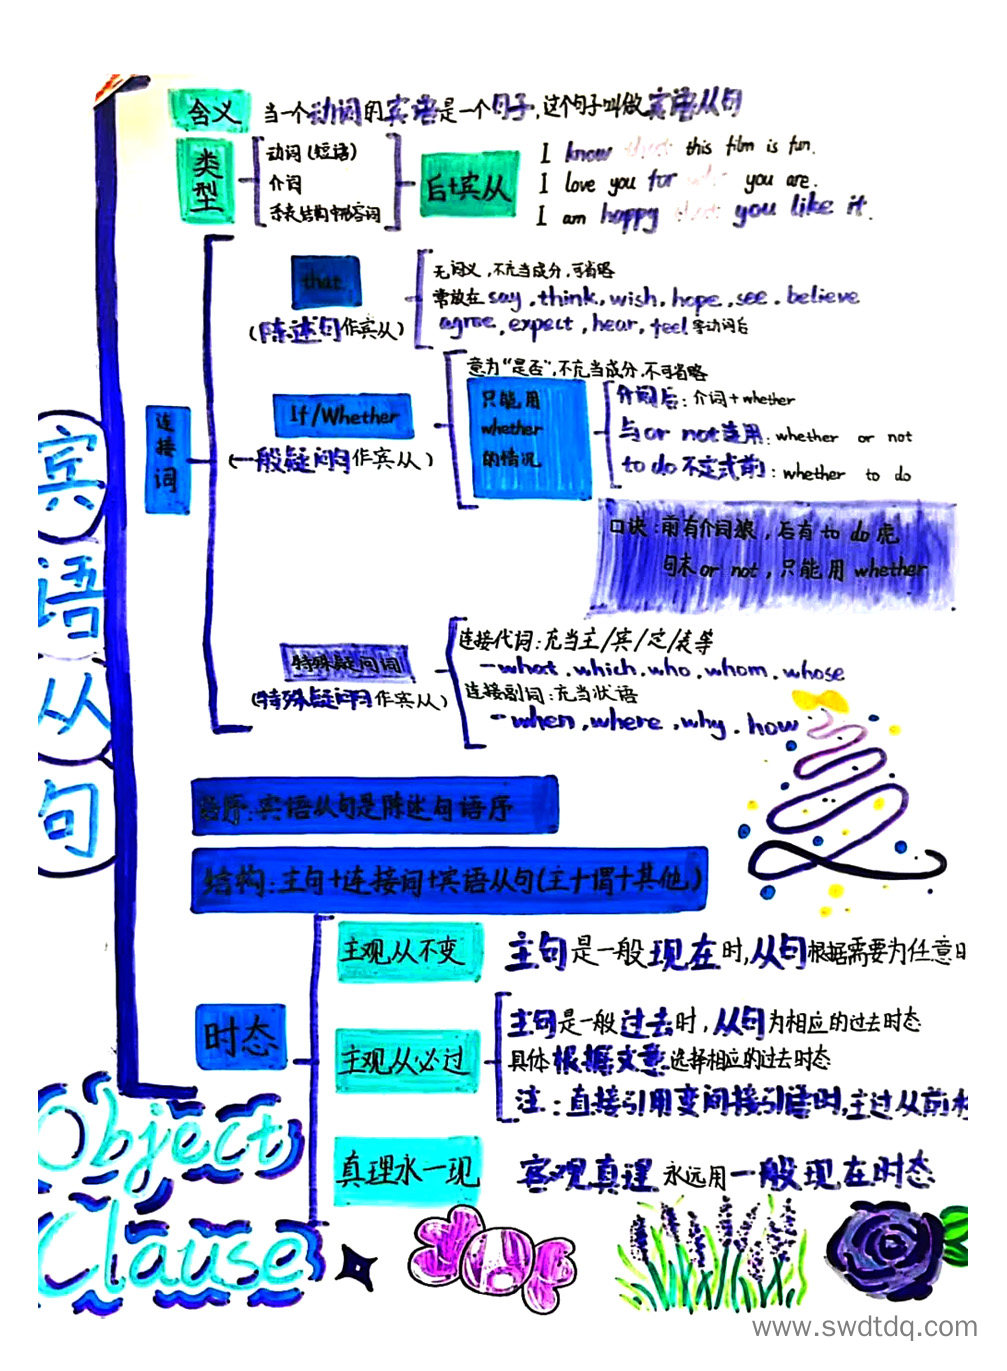 宾语从句
Object
Clause
含义
当一个动词的宾语是一个句子,这个句子叫做宾语从句
类型
动词(短语)
介词
系表结构中形容词
后+宾从
I know this film is fun.
I love you for you are.
I am happy you like it.
连接词
that
(陈述句作宾从)
无词义,不充当成分,可省略
常放在say,think,wish,hope,see,believe
agree,expect,hear,feel等动词后
If/Whether
(一般疑问句作宾从)
意为“是否”,不充当成分,不可省略
只能用
whether
的情况
介词后:介词+whether
与or not连用:whether or not
to do不定式前:whether to do
口诀:前有介词狼,后有to do虎
句末or not,只能用whether
特殊疑问词
(特殊疑问句作宾从)
连接代词:充当主/宾/定/表等
-what,which,who,whom,whose
连接副词:充当状语
-when,where,why,how
语序:宾语从句是陈述句语序
结构:主句+连接词+宾语从句(主+谓+其他)
时态
主观从不变
主句是一般现在时,从句根据需要为任意
主观从必过
主句是一般过去时,从句为相应的过去时态
具体根据文意选择相应的过去时态
注:直接引用变间接引语时,主过从前
真理永一现
客观真理永远用一般现在时态
www.swdtdq.com